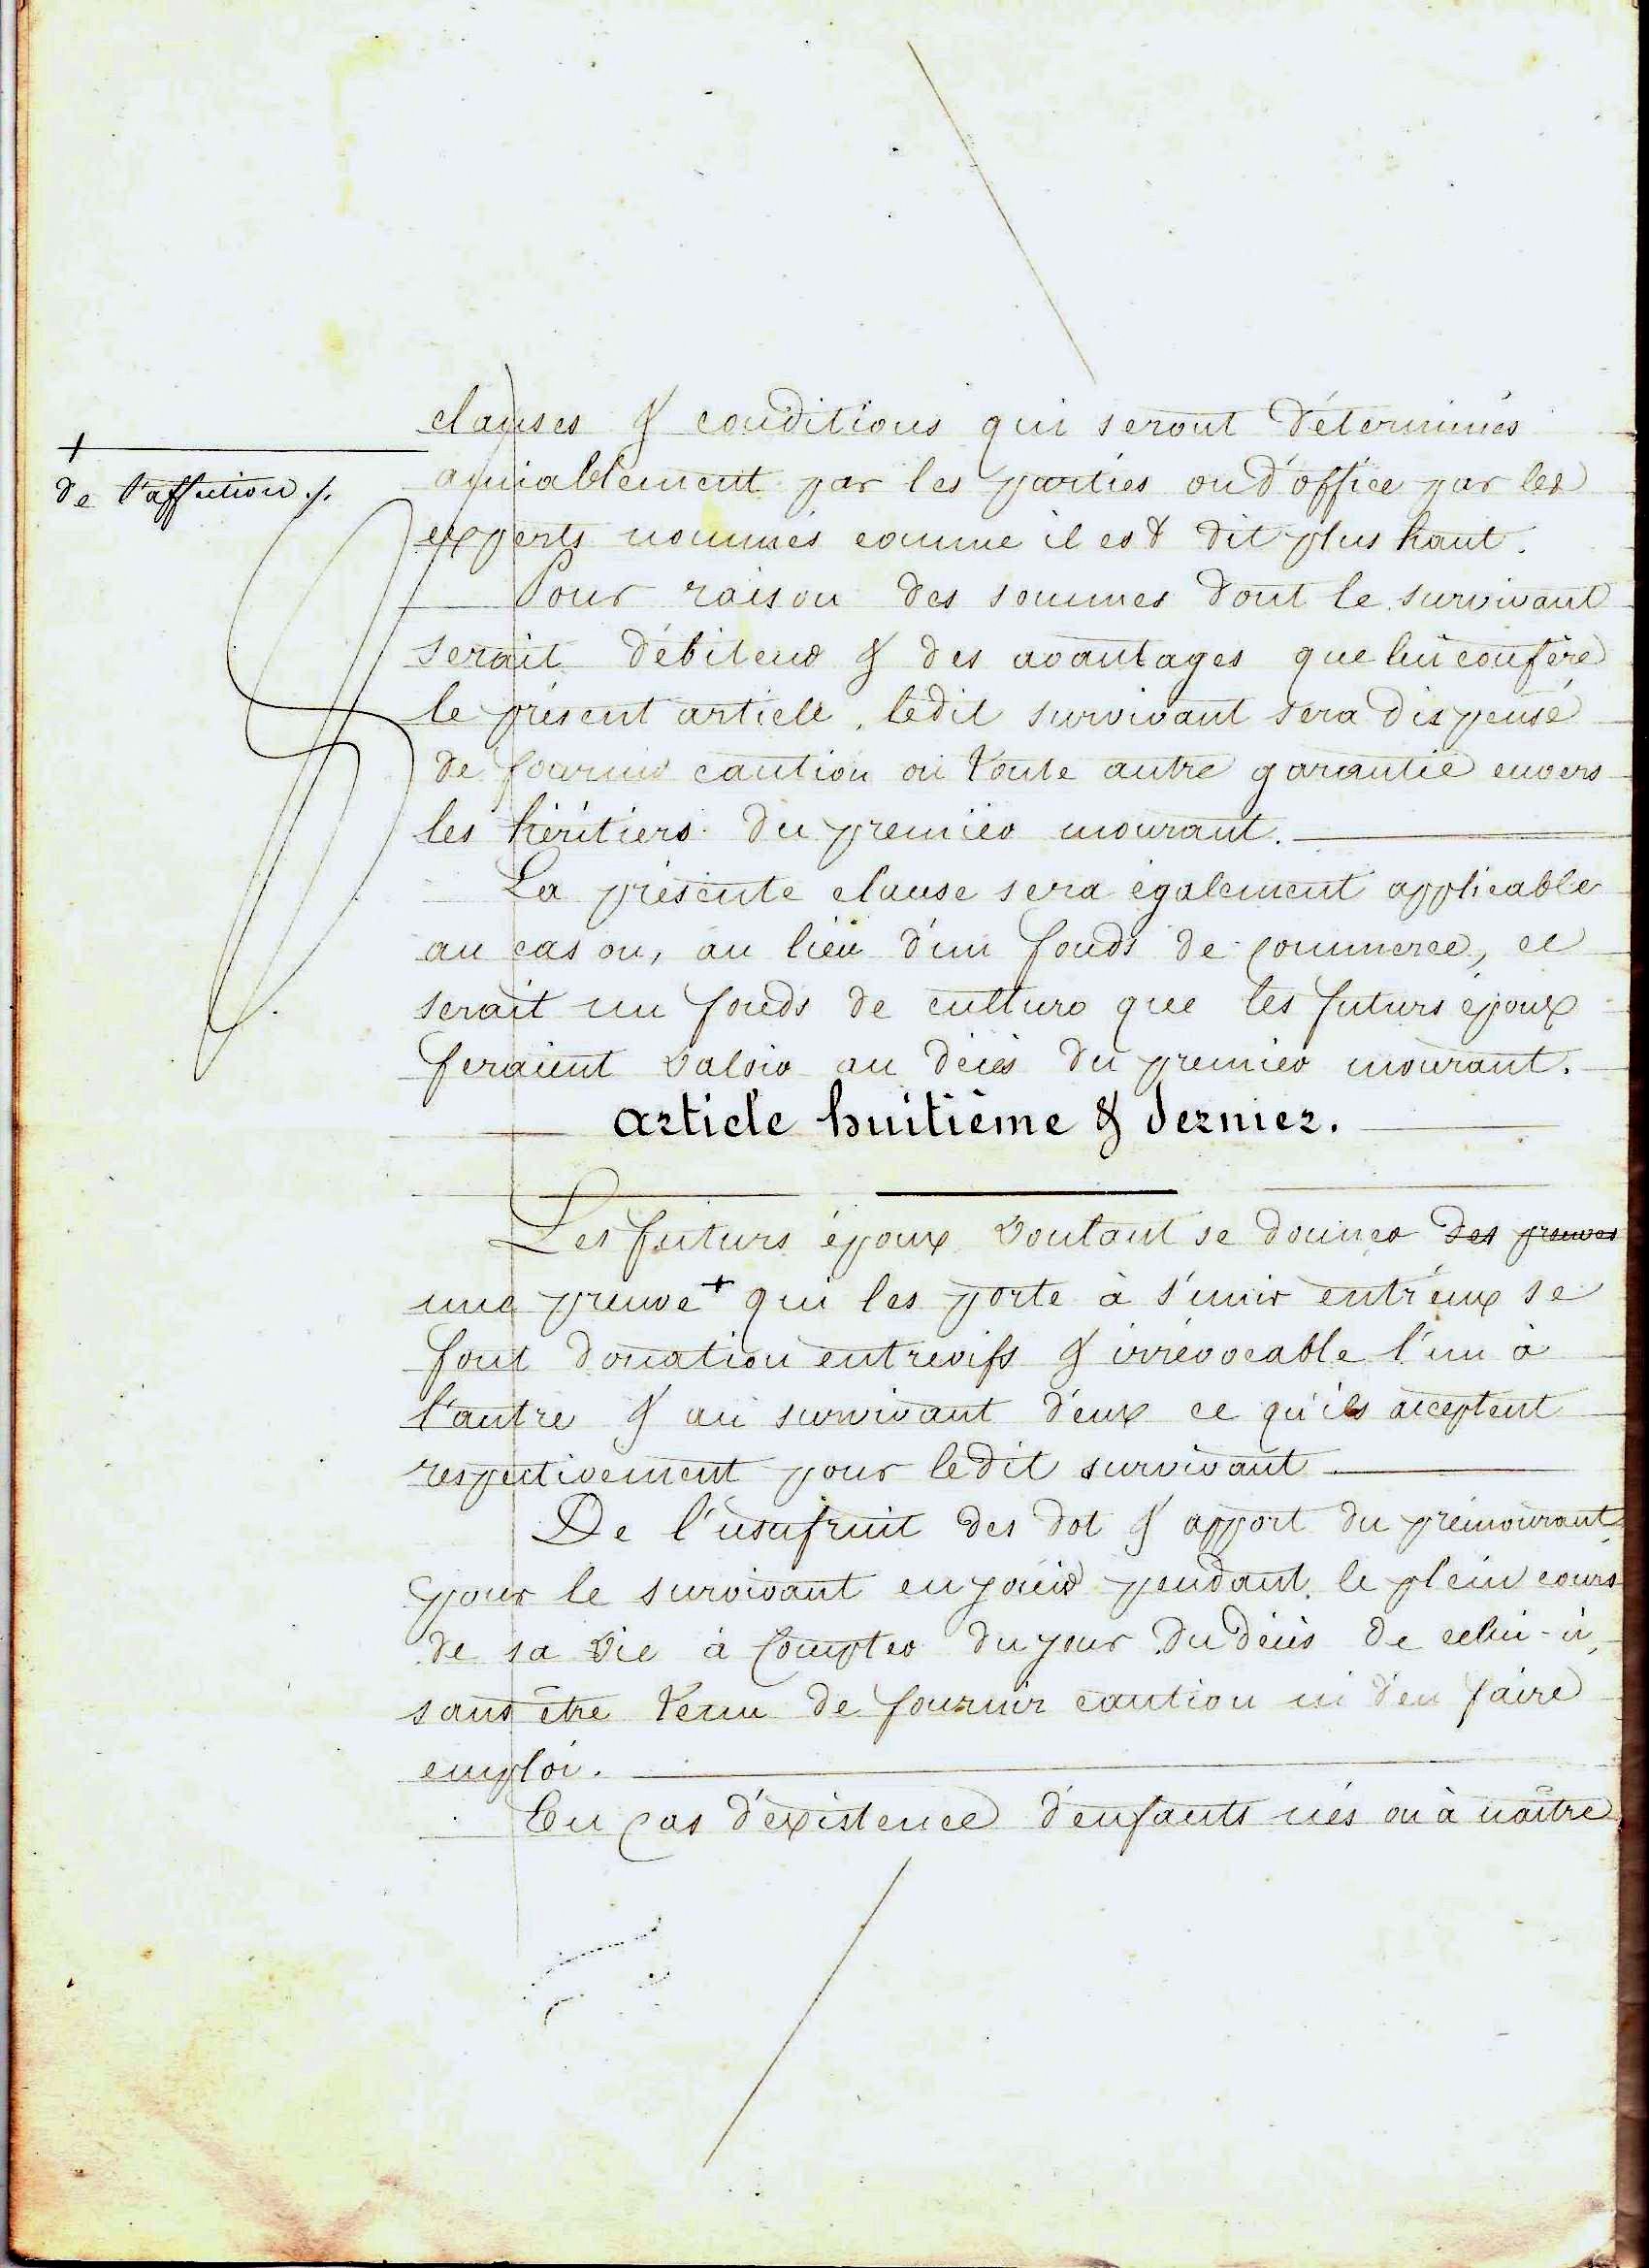 clauses & conditions qui seront déterminés
+
amiablement par les parties ou d'office par les
de l'affection ./.
experts nommés comme il est dit plus haut.
Pour raison des sommes dont le survivant
serait débiteur & des avantages que lui confère
le présent article, ledit survivant sera dispensé
de fournir caution ou toute autre garantie envers
les héritiers du premier mourant.
La présente clause sera également applicable
au cas ou, au lieu d'un fonds de commerce, ce
serait un fonds de culture que les futurs époux
feraient valoir au décès du premier mourant.
article huitième & dernier.
Les futurs époux voulant se donner des preuves
une preuve + qui les porte à s'unir entr'eux se
font donation entrevifs & irrévocable l'un à
l'autre & au survivant d'eux ce qu'ils acceptent
respectivement pour ledit survivant
De l'usufruit des dot & apport du prémourant
pour le survivant en jouir pendant le plein cours
de sa vie à compter du jour du décès de celui-ci,
sans être tenu de fournir caution ni d'en faire
emploi.
En cas d'existence d'enfants nés ou à naître